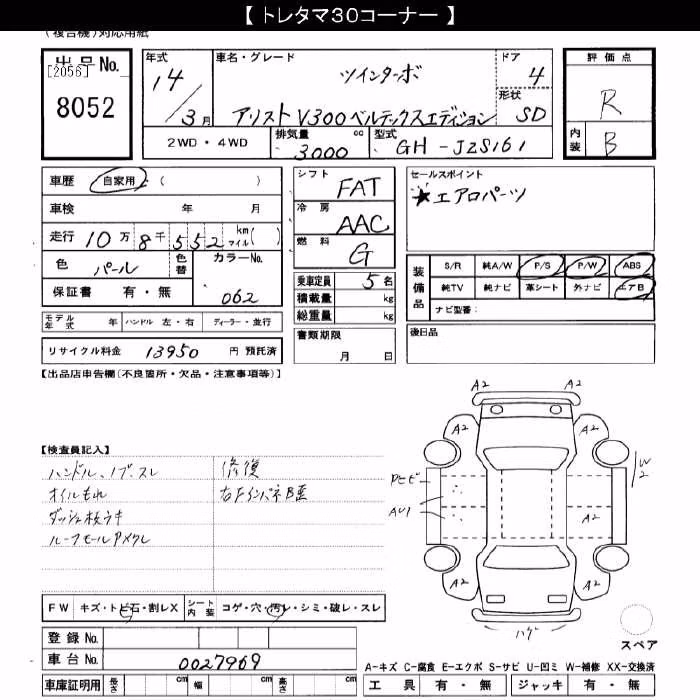 【 トレタマ30コーナー 】
(複合機)対応用紙
出品No.
[2056]
8052
年式
14/3月
車名・グレード
ツインターボ
アリスト V300ベルテックスエディション
ドア
4
形状
SD
2WD・4WD
排気量 cc
3000
型式
GH-JZS161
評価点
R
内装
B
車歴 自家用・( )
車検 年 月
走行 10万8千552 km マイル( )
色 パール 色替 カラーNo. 062
保証書 有・無
モデル年式 年 ハンドル 左・右 ディーラー・並行
リサイクル料金 13950 円 預託済
シフト FAT
冷房 AAC
燃料 G
乗車定員 5名
積載量 kg
総重量 kg
書類期限
月 日
セールスポイント
★エアロパーツ
装備品
S/R 純A/W P/S P/W ABS
純TV 純ナビ 革シート 外ナビ エアB
ナビ型番:
後日品
【出品店申告欄(不良箇所・欠品・注意事項等)】
【検査員記入】
ハンドル、ノブ、スレ
オイルもれ
ダッシュ板ウキ
ルーフモールアメクレ
修復
A2 A2
A2 A2
W2
AU1
A2
A2 A2
ハゲ
FW キズ・トビ石・割レX シート内装 コゲ・穴・汚レ・シミ・破レ・スレ
登録No.
車台No. 0027969
車庫証明用 長さ cm 幅 cm 高さ cm
スペア
A-キズ C-腐食 E-エクボ S-サビ U-凹ミ W-補修 XX-交換済
工具 有・無 ジャッキ 有・無